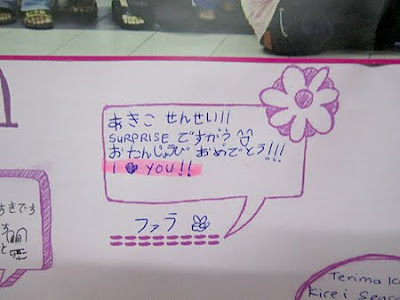 あきこ せんせい!!
SURPRISE ですかう
おたんじょうび おめでとう!!!
I ♥ YOU!!
ファラ
きです
Terima Ka
Kirei Sens